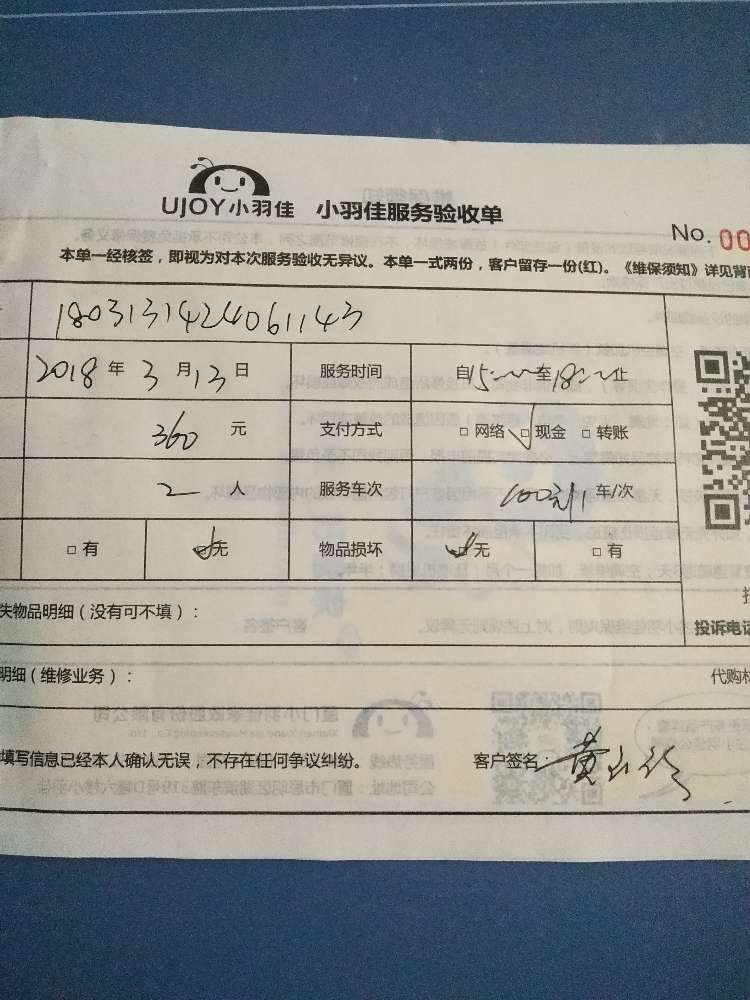 UJOY小羽佳 小羽佳服务验收单
No. 00
本单一经核签，即视为对本次服务验收无异议。本单一式两份，客户留存一份(红)。《维保须知》详见背面
1803131424061143
2018 年 3 月 13 日 服务时间 自15:00至18:00止
360 元 支付方式 □ 网络 ☑ 现金 □ 转账
2 人 服务车次 车/次
□ 有 ☑ 无 物品损坏 ☑ 无 □ 有
失物品明细（没有可不填）：
投诉电话
明细（维修业务）： 代购材
填写信息已经本人确认无误，不存在任何争议纠纷。 客户签名 黄